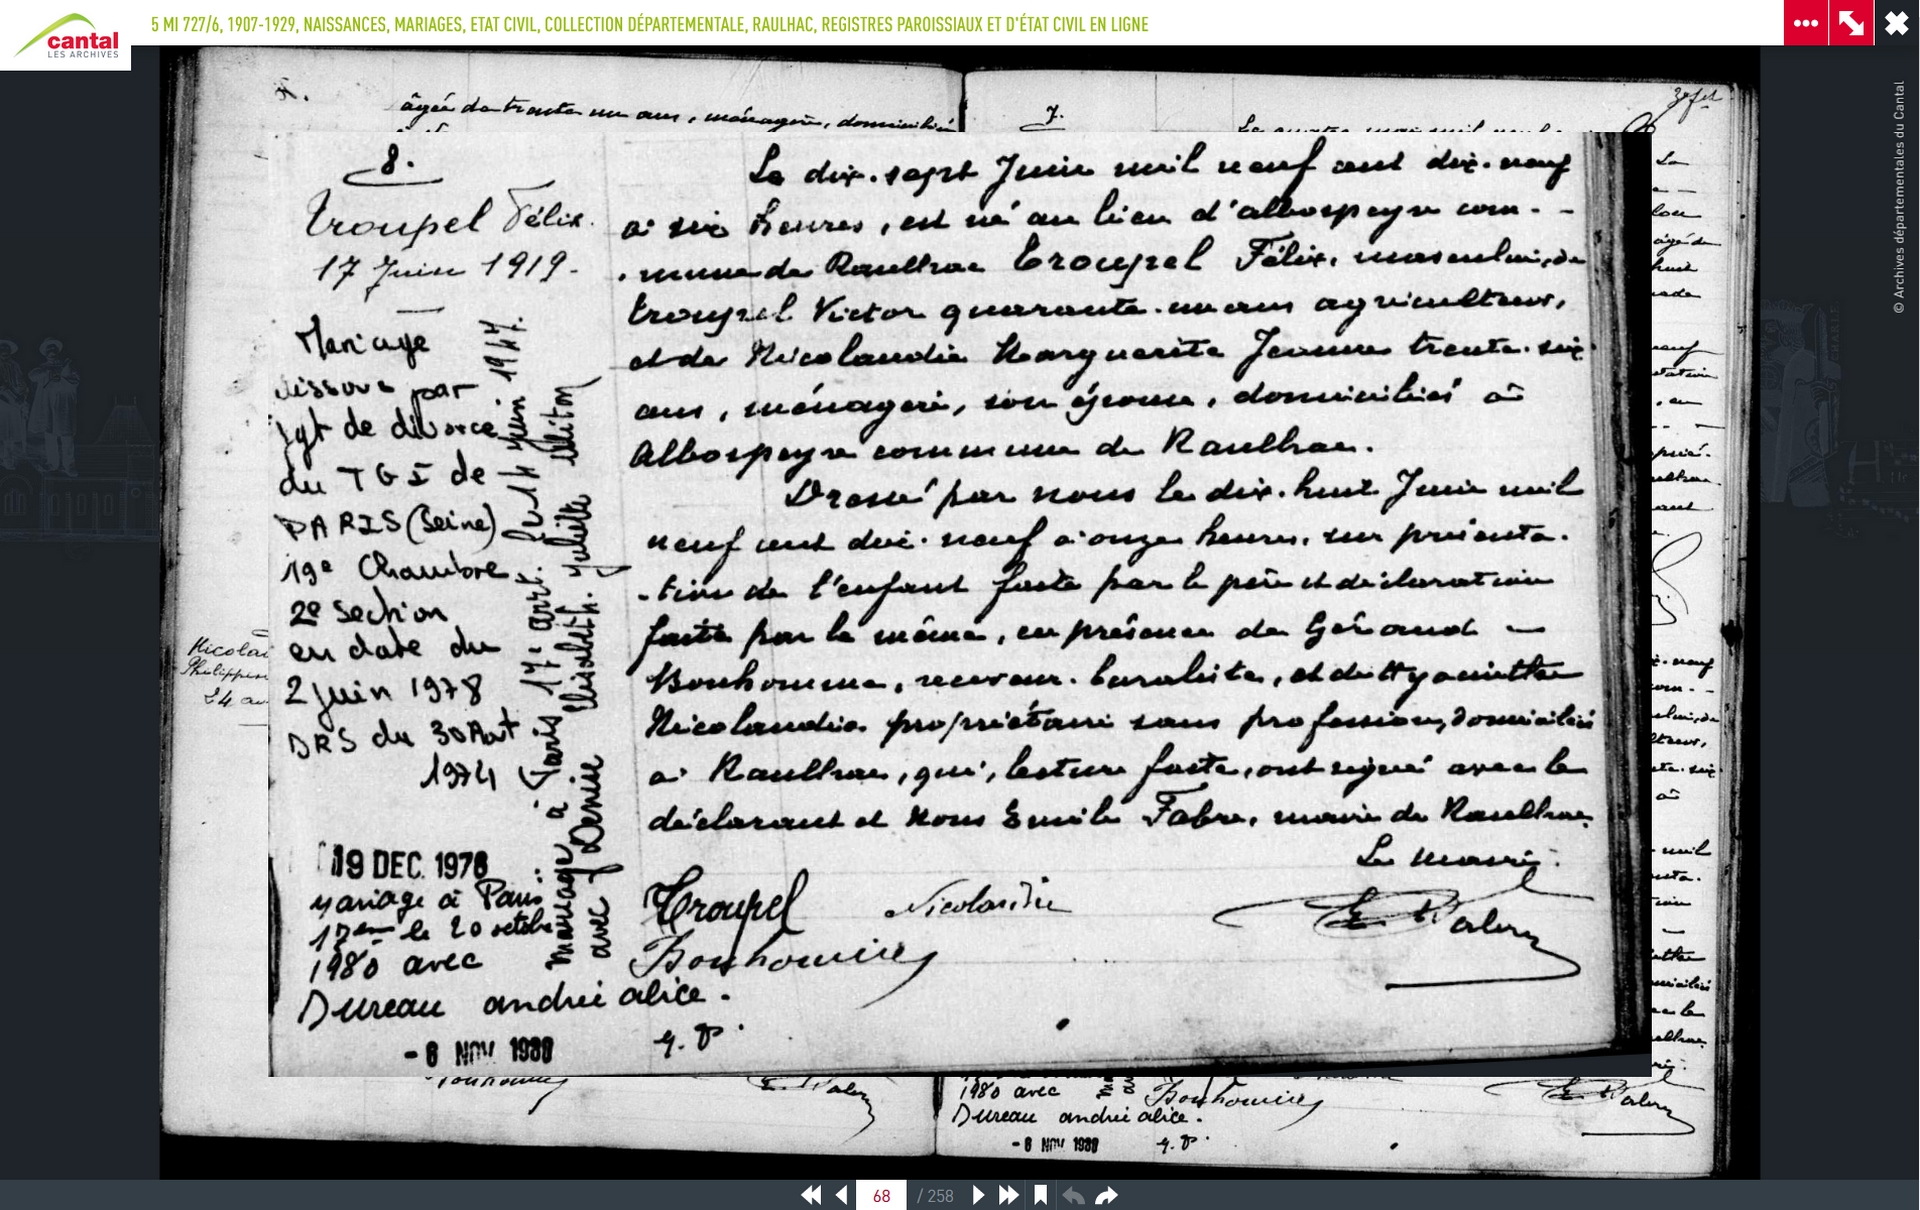 cantal
LES ARCHIVES
5 MI 727/6, 1907-1929, NAISSANCES, MARIAGES, ETAT CIVIL, COLLECTION DÉPARTEMENTALE, RAULHAC, REGISTRES PAROISSIAUX ET D'ÉTAT CIVIL EN LIGNE
© Archives départementales du Cantal
âgée de trente un ans, ménagère, domiciliés
7.
8.
Troupel Félix.
17 Juin 1919.
Mariage
dissous par
jgt de divorce
du TGI de
PARIS (Seine)
19e Chambre
2e Section
en date du
2 juin 1978
DRS du 30 Aout
1974
mariage à Paris 17e arrt. le 14 juin 1947.
avec Denise Elisabeth Juliette
19 DEC. 1978
mariage à Paris
17ème le 20 octobre
1980 avec
Dureau andrée alice.
- 6 NOV. 1980
Le dix-sept Juin mil neuf cent dix-neuf
à six heures, est né au lieu d'albospeyre com-
-mune de Raulhac Troupel Félix, masculin, de
troupel Victor quarante-un ans agriculteur,
et de Nicolaudie Marguerite Jeanne trente-six
ans, ménagère, son épouse, domiciliés à
Albospeyre commune de Raulhac.
Dressé par nous le dix-huit Juin mil
neuf cent dix-neuf à onze heures, sur présenta-
-tion de l'enfant faite par le père et déclaration
faite par le même, en présence de Géraud
Bonhomme, receveur-buraliste, et de Hyacinthe
Nicolaudie propriétaire sans profession, domiciliés
à Raulhac, qui, lecture faite, ont signé avec le
déclarant et Nous Emile Fabre, maire de Raulhac.
Le maire.
Troupel Nicolaudie E Fabre
Bonhomme
Nicolau
24 a
1980 avec
Dureau andrée alice.
- 6 NOV. 1980
Bonhomme
68 / 258